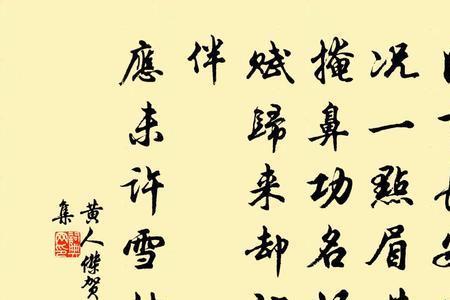 况一點眉
掩鼻功名
賦歸来却
伴
應未許雪
黄人傑賀
集